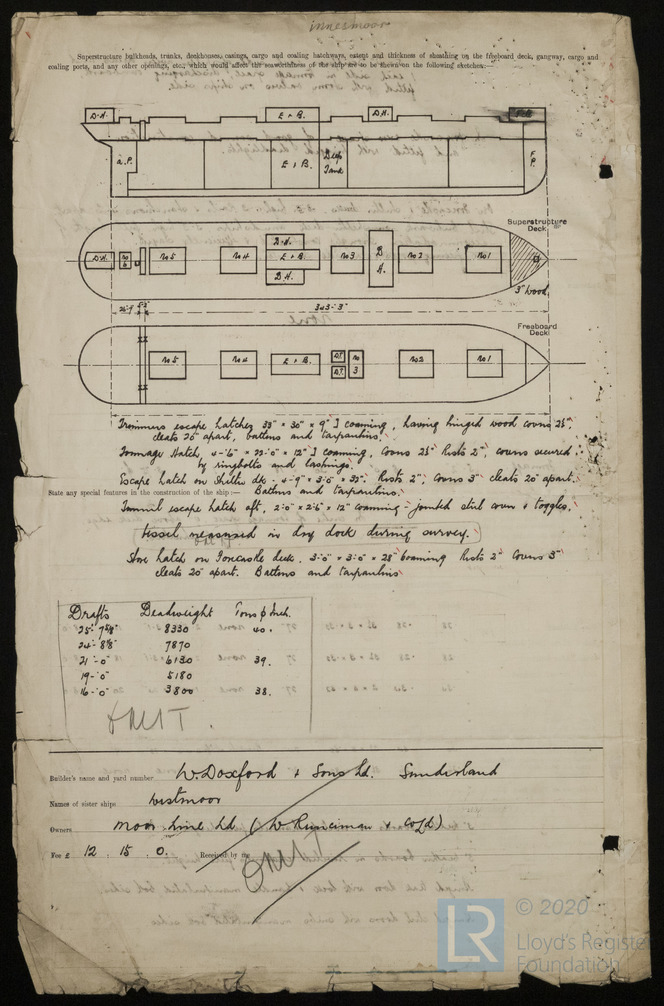 innesmoor
Superstructure bulkheads, trunks, deckhouses, casings, cargo and coaling hatchways, extent and thickness of sheathing on the freeboard deck, gangway, cargo and
coaling ports, and any other openings, etc., which would affect the seaworthiness of the ship are to be shown on the following sketches:—
D.H. E + B. D.H.
a.P. E + B. Deep Tank F.P.
Superstructure Deck
D.H. No 5 No 4 D.H. E + B. D.H. No 3 D.H. No 2 No 1
3" wood
343'-3"
Freeboard Deck
No 5 No 4 E + B. D.T. D.T. No 3 No 2 No 1
Trimmers escape hatches 33" × 30" × 9" ] coaming, having hinged wood covers 2½",
cleats 20" apart, battens and tarpaulins.
Tonnage Hatch, 4'-6" × 22'-0" × 12" ] coaming, covers 2½" Rests 2", covers secured
by ringbolts and lashings.
Escape hatch on Shelter dk. 4'-9" × 3'-0" × 32". Rests 2", covers 3" cleats 20" apart.
State any special features in the construction of the ship:— Battens and tarpaulins.
Tunnel escape hatch aft, 2'-0" × 2'-6" × 12" coaming - jointed steel cover & toggles.
Vessel measured in dry dock during survey.
Store hatch on Forecastle deck. 3'-0" × 3'-0" × 28" Coaming Rests 2" Covers 3"
cleats 20" apart. Battens and tarpaulins
Drafts Deadweight Tons ℘ Inch.
25'-7⅝" 8330 40.
24'-8½" 7870
21'-0" 6130 39.
19'-0" 5180
16'-0" 3800 38.
OMIT.
Builder's name and yard number W. Doxford & Sons Ld. Sunderland
Names of sister ships Westmoor
Owners Moor Line Ld (W Runciman & Co Ld)
Fee £ 12 . 15 . 0. Received by me
OMIT
LR © 2020
Lloyd's Register
Foundation